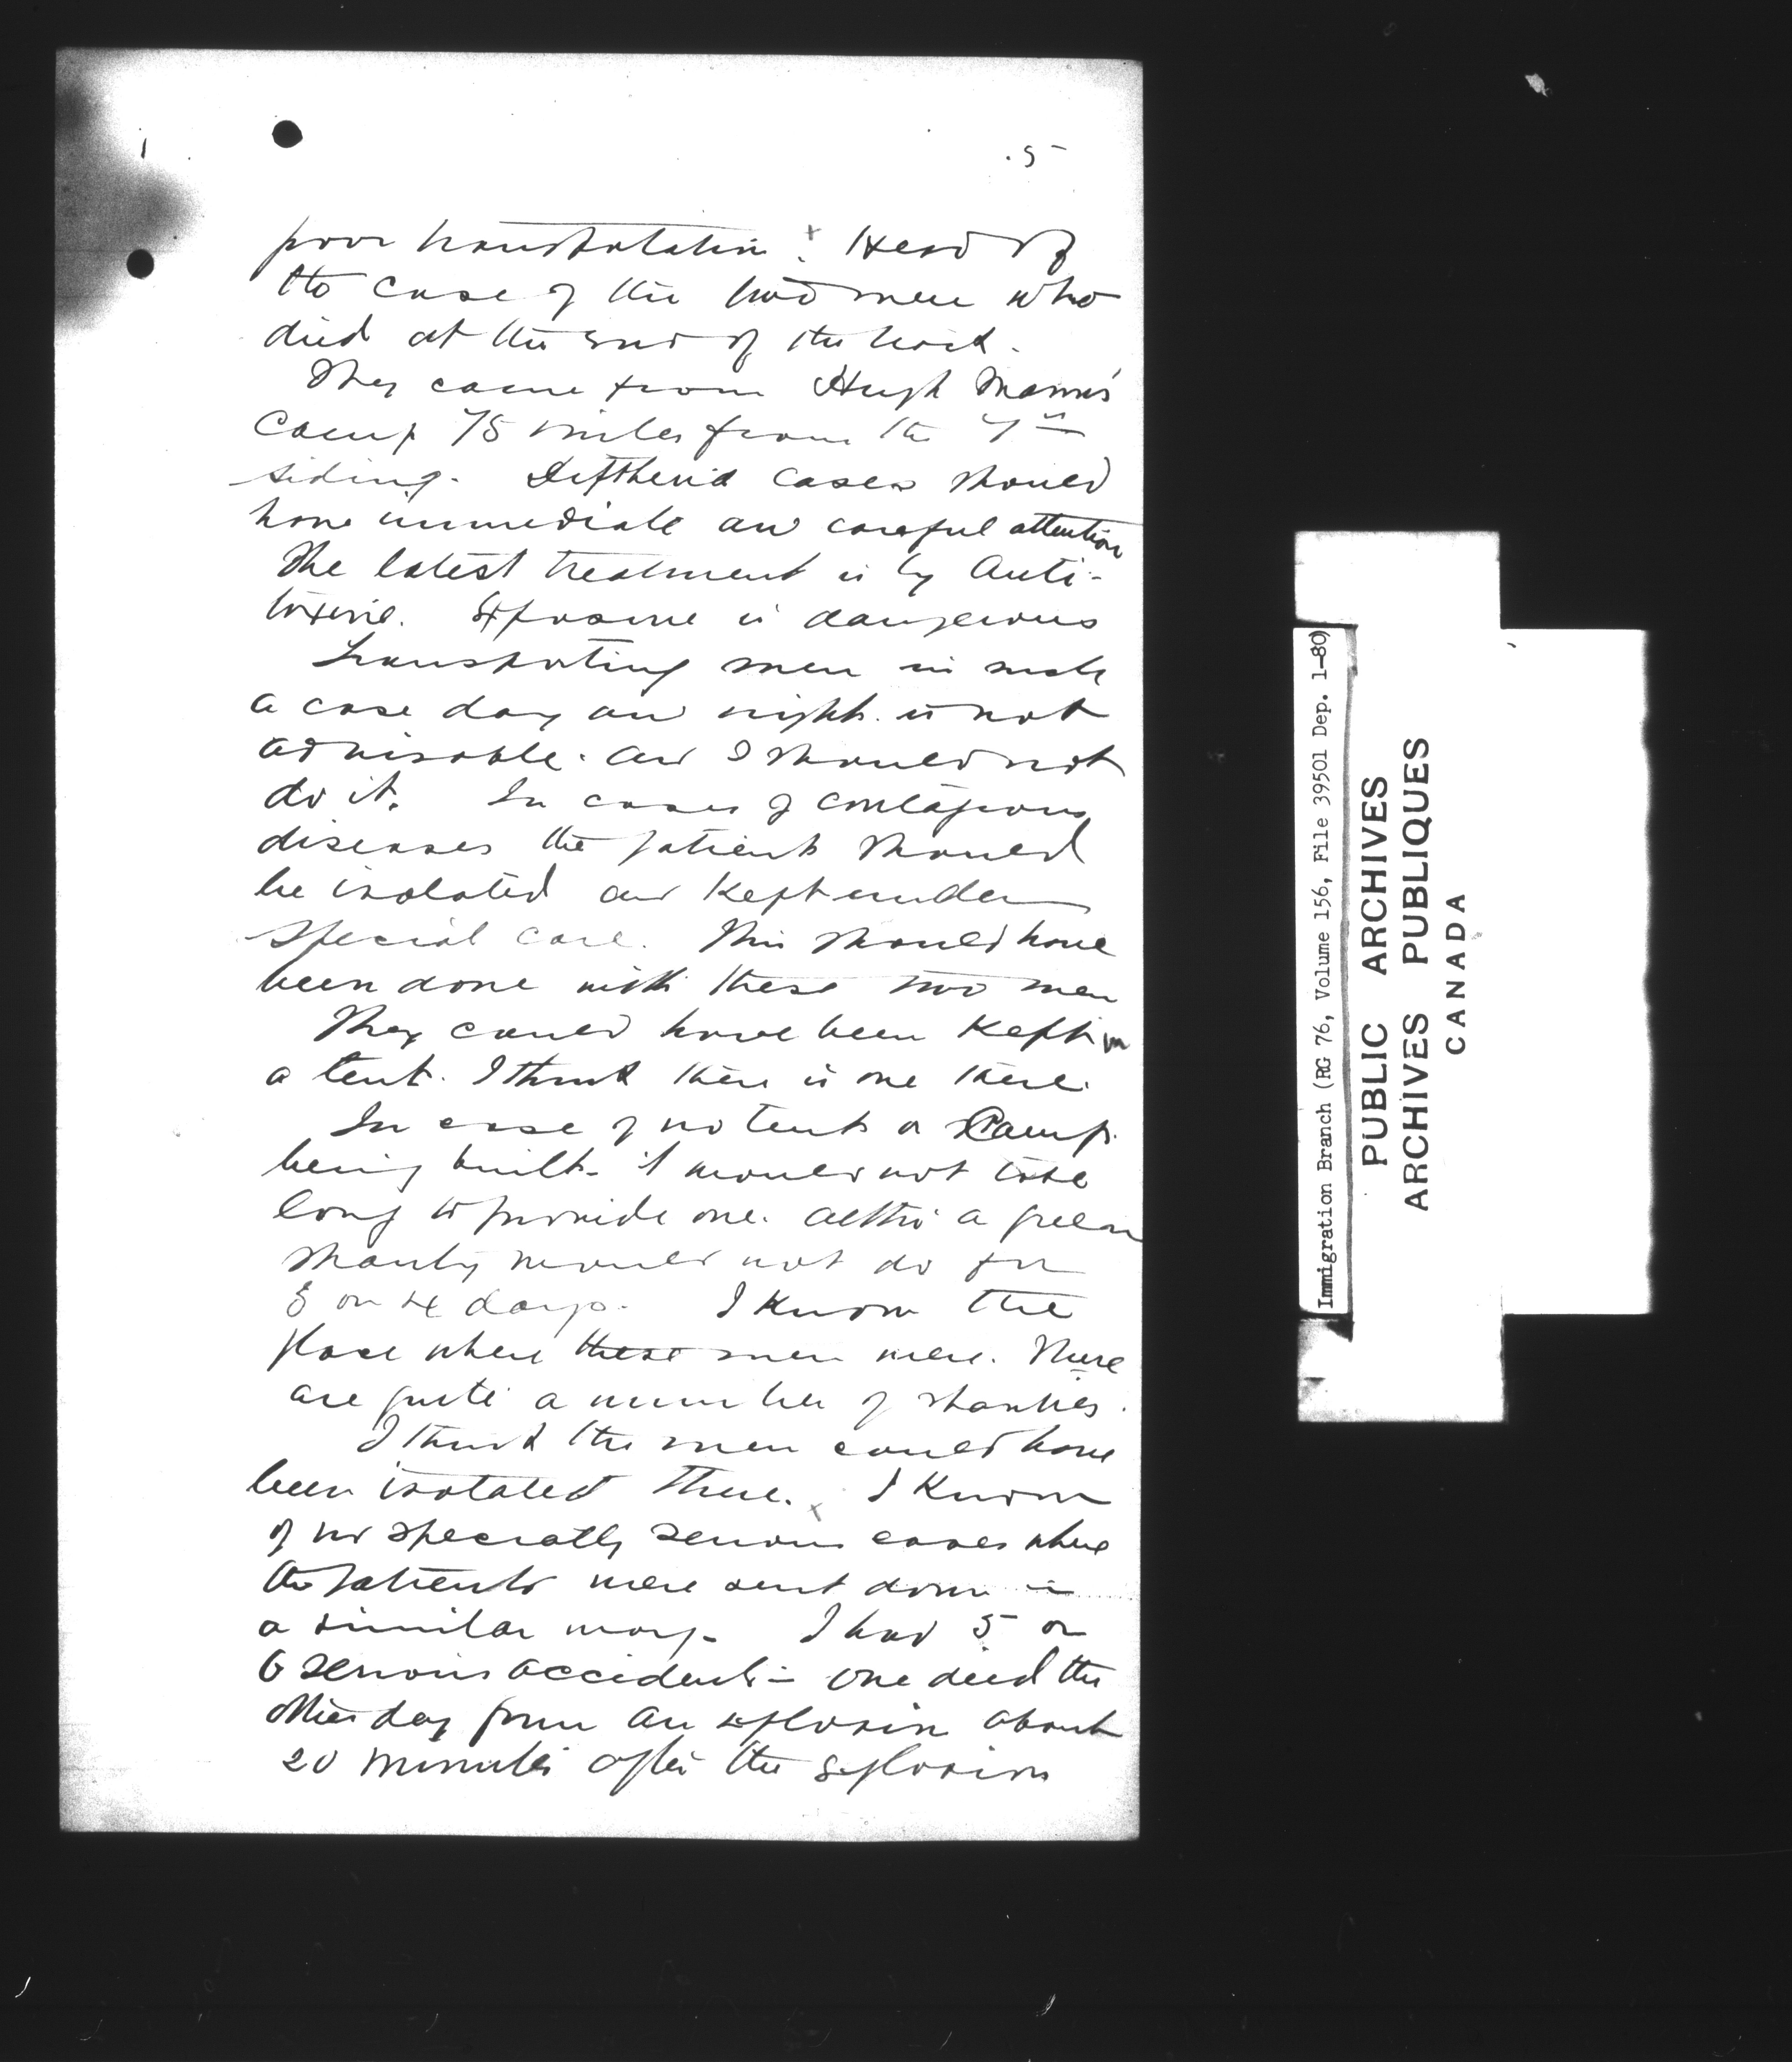 5
poor transportation. Heard of
the case of the two men who
died at the end of the track.
They came from Hugh Mann's
Camp 75 miles from the 7th
siding. Diftheria cases should
have immediate and careful attention
The latest treatment is by Anti-
toxine. Exposure is dangerous
Transporting men in such
a case day and night is not
advisable. and I should not
do it. In cases of contagious
diseases the patients should
be isolated and Kept under
special care. This should have
been done with these two men
They could have been Kept in
a tent. I think there is one there.
In case of no tents or Camp
being built - it would not take
long to provide one. altho' a green
shanty would not do for
3 or 4 days. I Know the
place where these men were. There
are quite a number of shanties.
I think the men could have
been isolated there. I Know
of no specially serious cases where
the patients were sent down in
a similar way - I had 5 or
6 serious accidents - one died the
other day from an explosion about
20 minutes after the explosion
Immigration Branch (RG 76, Volume 156, File 39501 Dep. 1-80)
PUBLIC ARCHIVES
ARCHIVES PUBLIQUES
CANADA